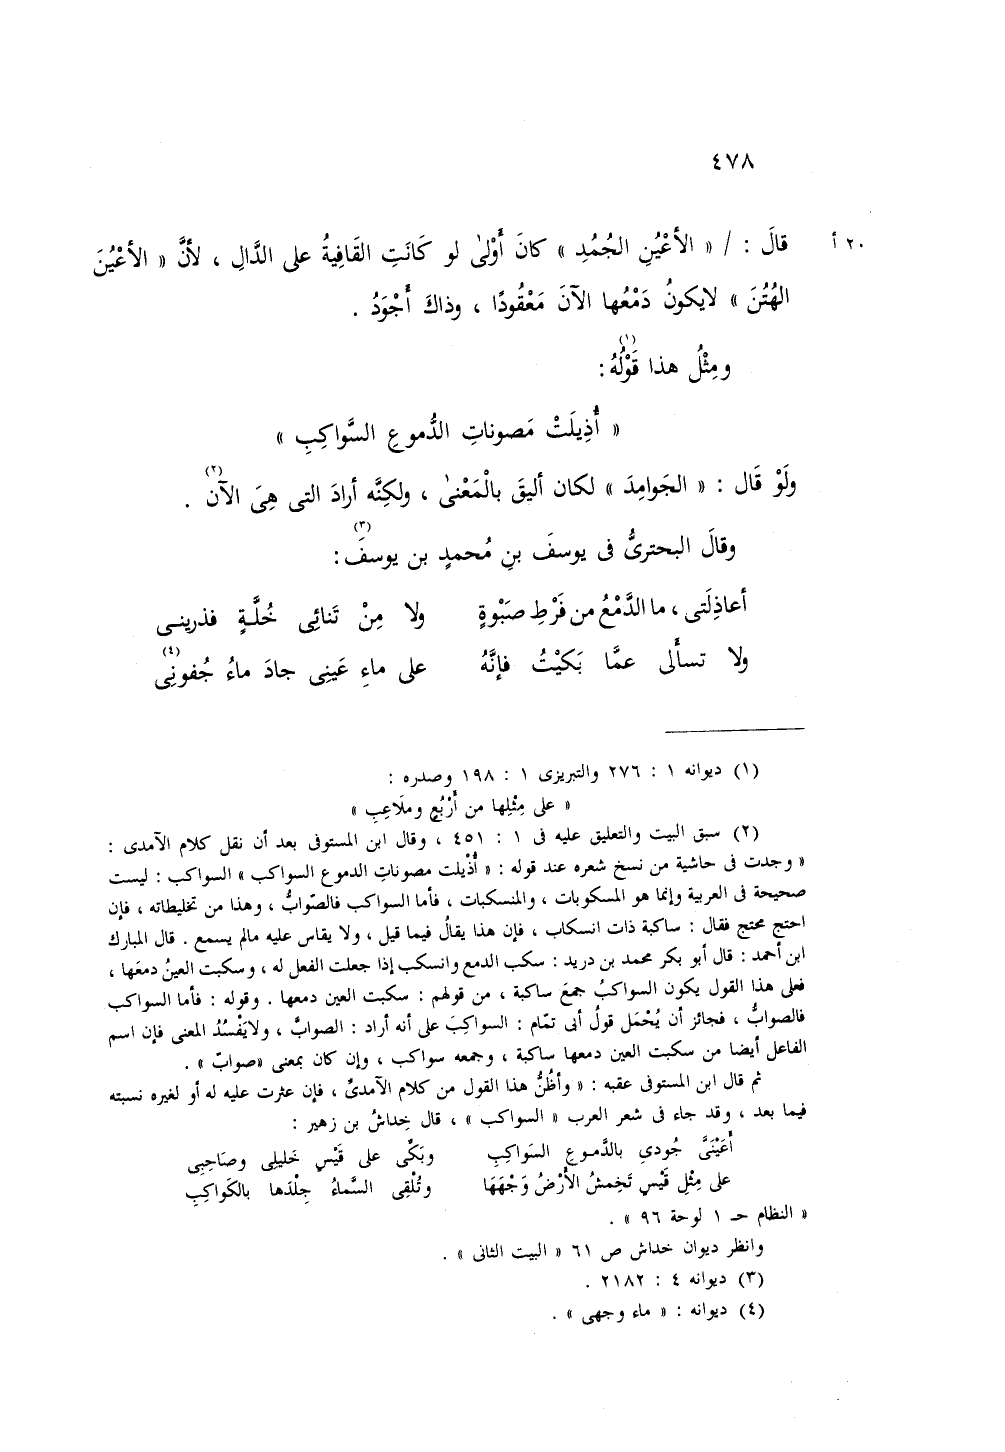 ٤٧٨
٢٠ أ
قالَ : / « الأعْيُنِ الجُمُدِ » كانَ أَوْلىٰ لو كَانَتِ القَافِيةُ على الدَّالِ ، لأنَّ « الأعْيُنَ
الهُتُنَ » لايكونُ دَمْعُها الآنَ مَعْقُودًا ، وذاكَ أَجْوَدُ .
ومِثْلُ هذا قَوْلُهُ(١) :
« أُذِيلَتْ مَصوناتِ الدُّموعِ السَّواكِبِ »
ولَوْ قَال : « الجَوامِدَ » لكان أليقَ بالْمَعْنىٰ ، ولكِنَّه أرادَ التى هِىَ الآن(٢) .
وقالَ البحترىُّ فى يوسفَ بنِ مُحمدٍ بن يوسفَ(٣) :
أعاذِلَتى ، ما الدَّمْعُ من فَرْطِ صَبْوةٍ ولا مِنْ تَنائِى خُلَّةٍ فذرينى
ولا تسأَلى عمَّا بَكيْتُ فإنَّهُ على ماءِ عَينِى جادَ ماءُ جُفونِى(٤)
(١) ديوانه ١ : ٢٧٦ والتبريزى ١ : ١٩٨ وصدره :
« على مِثْلِها من أَرْبُعٍ وملَاعِبِ »
(٢) سبق البيت والتعليق عليه فى ١ : ٤٥١ ، وقال ابن المستوفى بعد أن نقل كلام الآمدى :
« وجدت فى حاشية من نسخ شعره عند قوله : « أُذْيلت مصوناتِ الدموع السواكب » السواكب : ليست
صحيحة فى العربية وإنما هو المسكوبات ، والمنسكبات ، فأما السواكب فالصّوابُّ ، وهذا من تخليطاته ، فإن
احتج محتج فقال : ساكبة ذات انسكاب ، فإن هذا يقالُ فيما قيل ، ولا يقاس عليه مالم يسمع . قال المبارك
ابن أحمد : قال أبو بكر محمد بن دريد : سكب الدمع وانسكب إذا جعلت الفعل له ، وسكبت العينُ دمعَها ،
فعلى هذا القول يكون السواكبُ جمعَ ساكبة ، من قولهم : سكبت العين دمعها . وقوله : فأما السواكب
فالصوابُّ ، فجائز أن يُحْمَل قولُ أبى تمّام : السواكِبَ على أنه أراد : الصوابَّ ، ولايَفْسُدُ المعنى فإن اسم
الفاعل أيضا من سكبت العين دمعها ساكبة ، وجمعه سواكب ، وإن كان بمعنى «صوابّ » .
ثم قال ابن المستوفى عقبه : « وأظُنُّ هذا القول من كلام الآمدىّ ، فإن عثرت عليه له أو لغيره نسبته
فيما بعد ، وقد جاء فى شعر العرب « السواكب » ، قال خِداشُ بن زهير :
أَعَيْنَىَّ جُودي بالدَّموعِ السَواكِبِ وبَكِّى على قَيْسٍ خَليلِى وصَاحِبِى
على مِثْلِ قَيْسٍ تَخِمشُ الأَرْضُ وَجْهَهَا وتُلْقِى السَّماءُ جِلْدَها بالكَواكِبِ
« النظام حـ ١ لوحة ٩٦ » .
وانظر ديوان خداش ص ٦١ « البيت الثانى » .
(٣) ديوانه ٤ : ٢١٨٢ .
(٤) ديوانه : « ماء وجهى » .